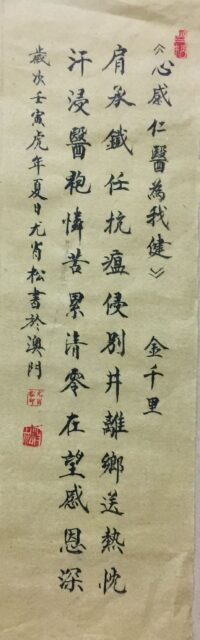 《心感仁醫為我健》 金千里
肩承鐵任抗瘟侵別井離鄉送熱忱
汗浸醫袍憐苦累清零在望感恩深
歲次壬寅虎年夏日尤肖松書於澳門